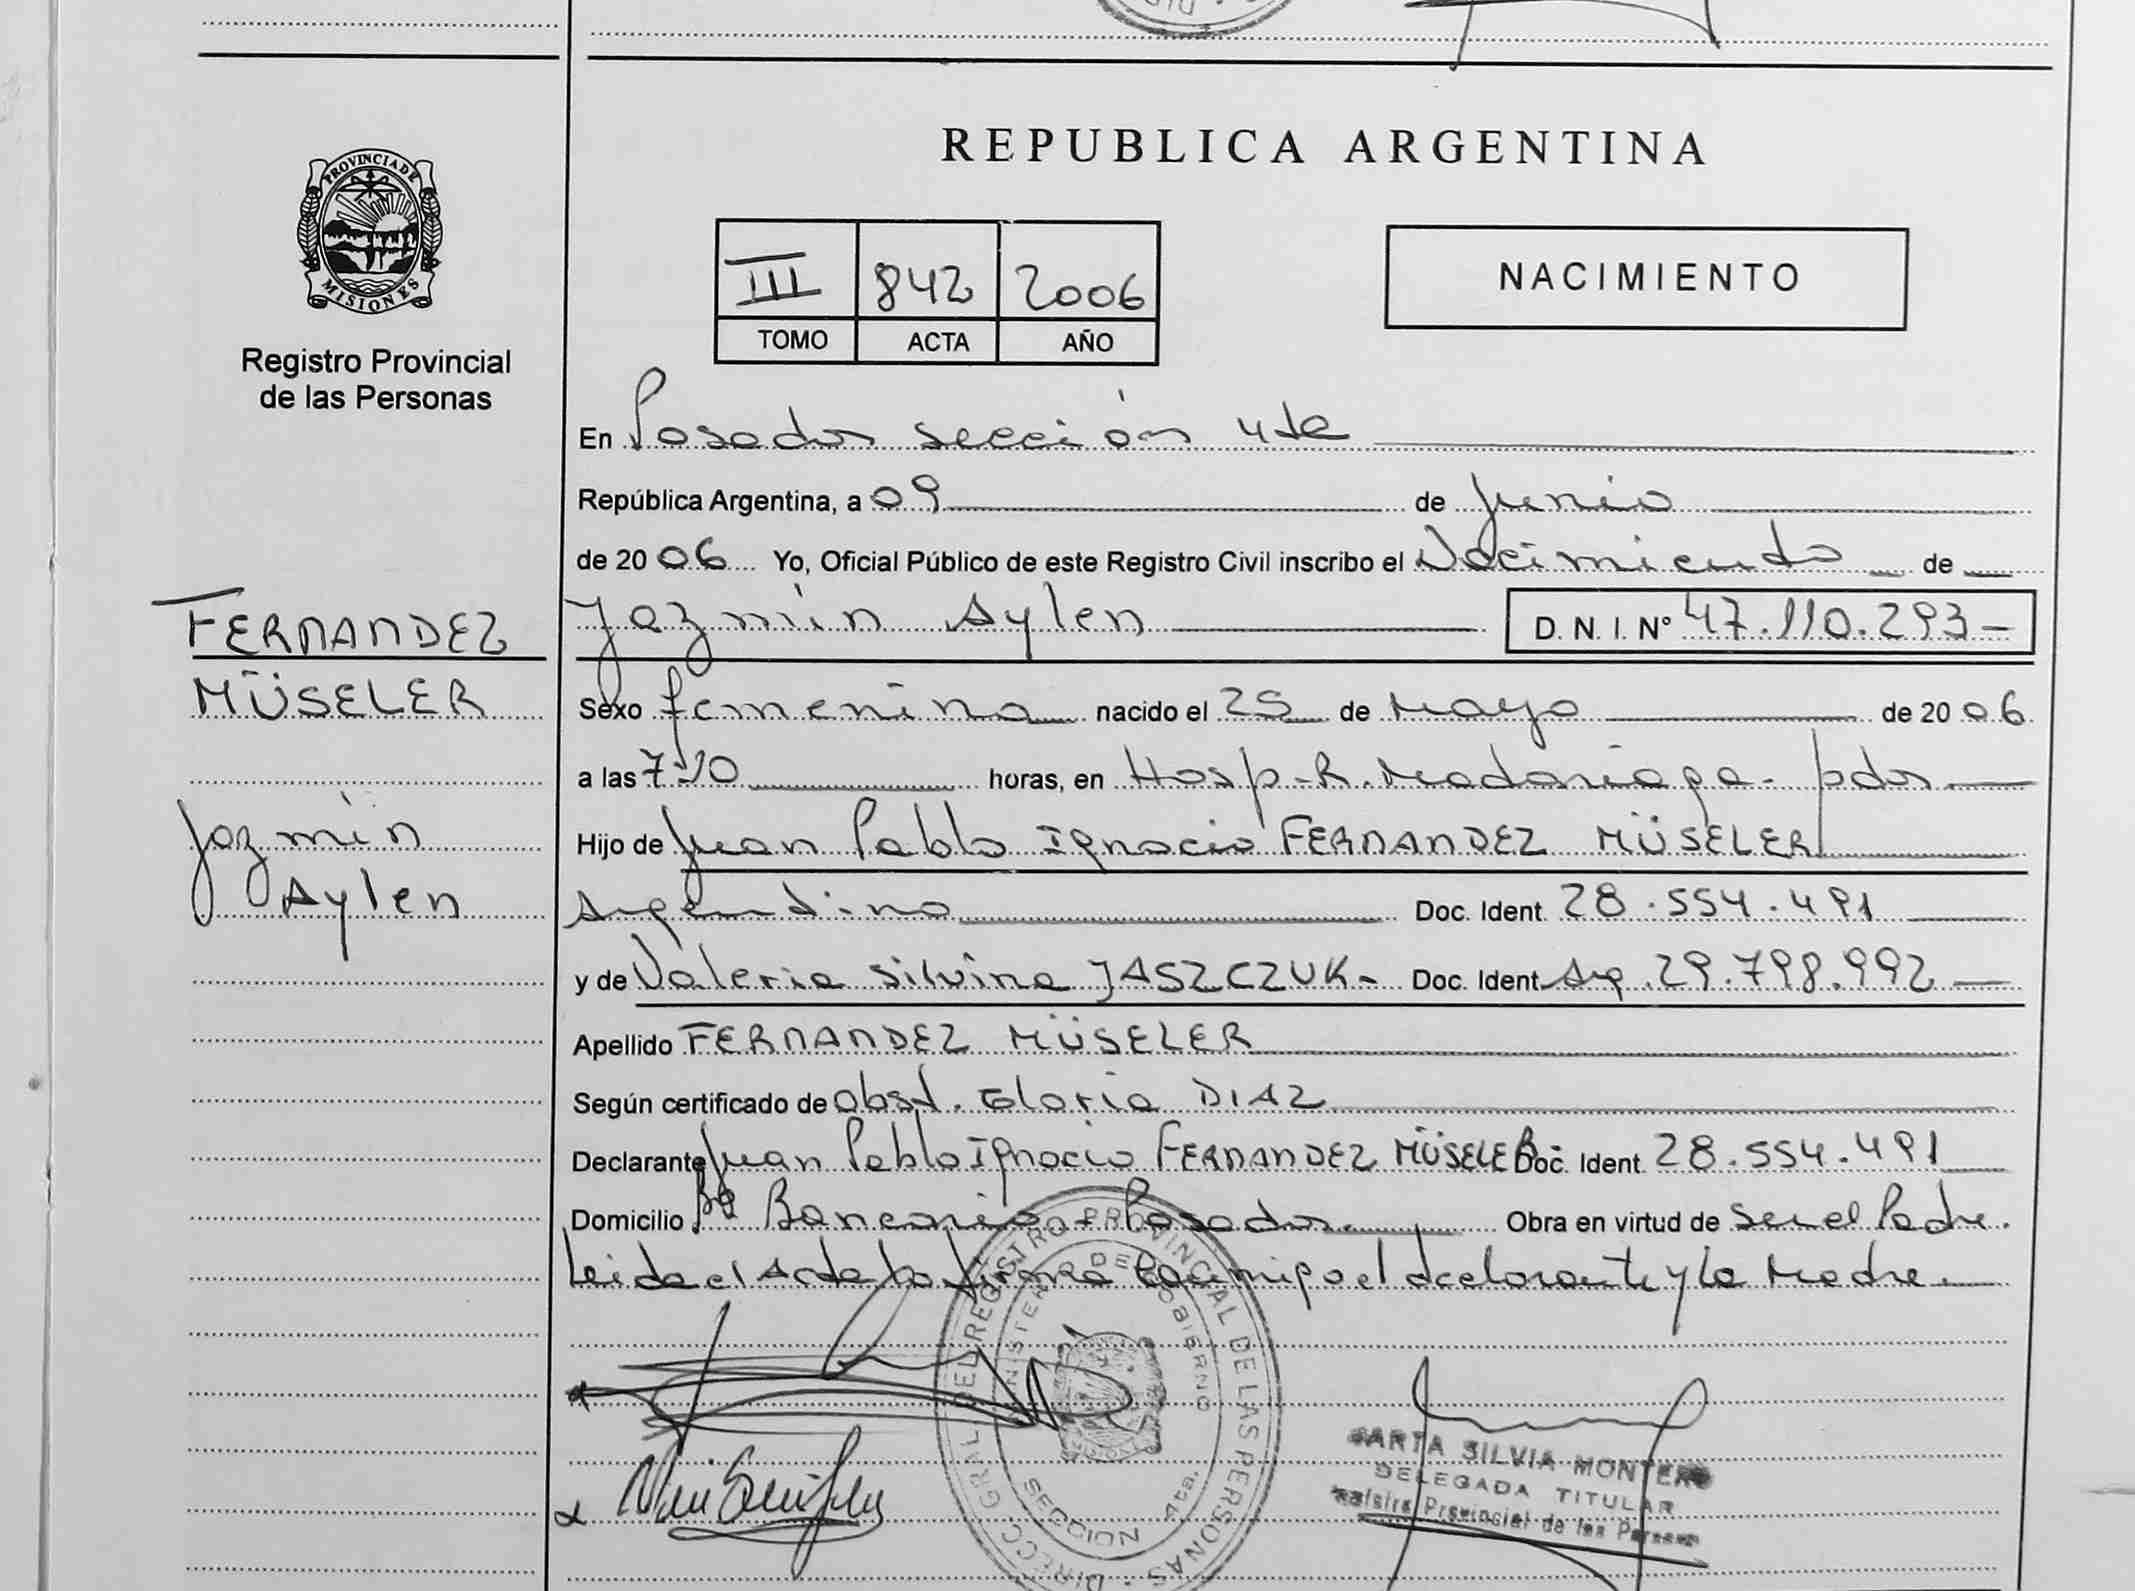 PROVINCIA DE
MISIONES
Registro Provincial
de las Personas
FERNANDEZ
MÜSELER
Jazmín
Aylen
REPUBLICA ARGENTINA
III 842 2006
TOMO ACTA AÑO
NACIMIENTO
En Posadas sección 4ta
República Argentina, a 09 de Junio
de 20 06 Yo, Oficial Público de este Registro Civil inscribo el Nacimiento de
Jazmín Aylen D. N. I. Nº 47.110.293-
Sexo femenina nacido el 25 de Mayo de 20 06
a las 7:10 horas, en Hosp-R. Madariaga - pdas
Hijo de Juan Pablo Ignacio FERNANDEZ MÜSELER
Argentino Doc. Ident. 28.554.491
y de Valeria Silvina JASZCZUK- Doc. Ident Arg. 29.798.992
Apellido FERNANDEZ MÜSELER
Según certificado de obst. Gloria DIAZ
Declarante Juan Pablo Ignacio FERNANDEZ MÜSELER Doc. Ident. 28.554.491
Domicilio Bº Bancario - Posadas Obra en virtud de ser el Padre.
Leida el Acta la firma conmigo el declarante y la Madre.
DIRECC. GRAL. DEL REGISTRO PROVINCIAL DE LAS PERSONAS
MINISTERIO DE GOBIERNO
SECCION 4ta.
SILVIA MONTERO
DELEGADA TITULAR
Provincial de las Personas